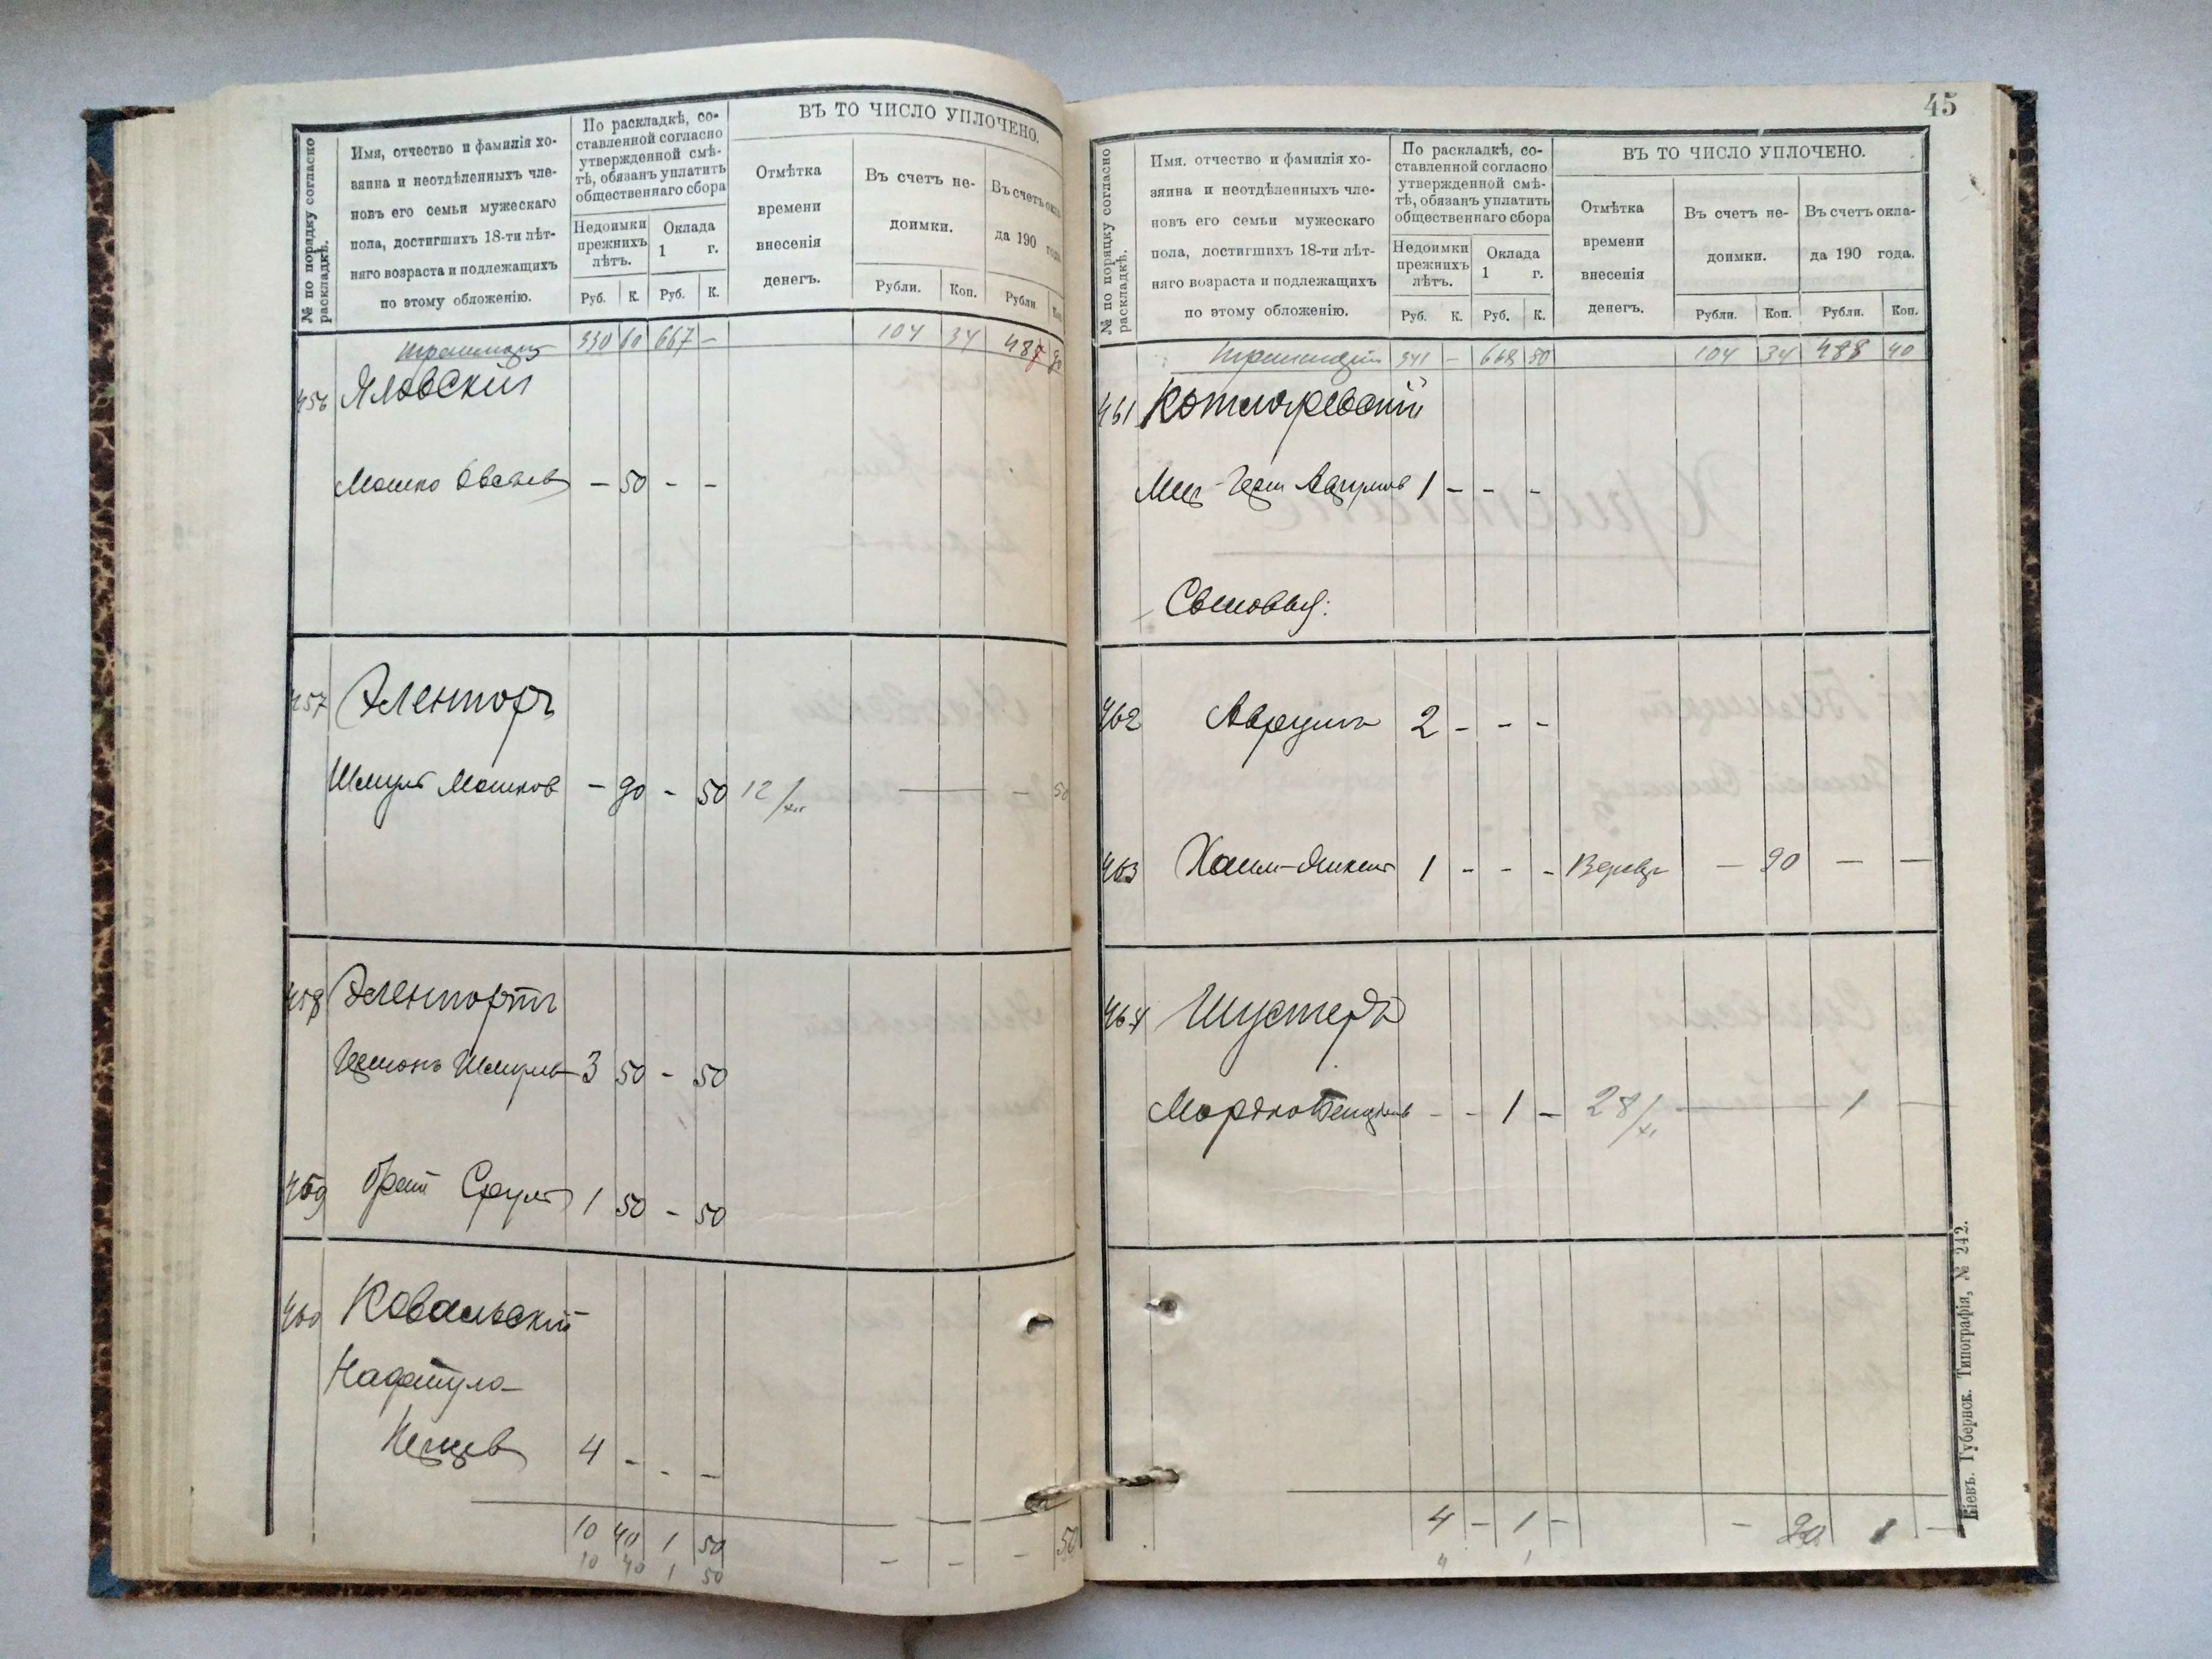 № по порядку согласно раскладкѣ.
Имя, отчество и фамилія хо-
зяина и неотдѣленныхъ чле-
новъ его семьи мужескаго
пола, достигшихъ 18-ти лѣт-
няго возраста и подлежащихъ
по этому обложенію.
По раскладкѣ, со-
ставленной согласно
утвержденной смѣ-
тѣ, обязанъ уплатить
общественнаго сбора
Недоимки
прежнихъ
лѣтъ.
Оклада
1 г.
Руб. К. Руб. К.
ВЪ ТО ЧИСЛО УПЛОЧЕНО.
Отмѣтка
времени
внесенія
денегъ.
Въ счетъ не-
доимки.
Въ счетъ окла-
да 190 года.
Рубли. Коп. Рубли Коп.
330 60 667 - 104 34 487 90
456 Яловскій
Мошко - 50 - -
457 Эленторъ
Шмуль Мошков - 90 - 50 12/XII — - 50
458 Элентортъ
3 50 - 50
459 братъ Сруль 1 50 - 50
460 Ковальскій
4 - - -
10 40 1 50 - - - 50
10 40 1 50
45
№ по порядку согласно раскладкѣ.
Имя, отчество и фамилія хо-
зяина и неотдѣленныхъ чле-
новъ его семьи мужескаго
пола, достигшихъ 18-ти лѣт-
няго возраста и подлежащихъ
по этому обложенію.
По раскладкѣ, со-
ставленной согласно
утвержденной смѣ-
тѣ, обязанъ уплатить
общественнаго сбора
Недоимки
прежнихъ
лѣтъ.
Оклада
1 г.
Руб. К. Руб. К.
ВЪ ТО ЧИСЛО УПЛОЧЕНО.
Отмѣтка
времени
внесенія
денегъ.
Въ счетъ не-
доимки.
Въ счетъ окла-
да 190 года.
Рубли. Коп. Рубли. Коп.
341 - 668 50 104 34 488 40
461 Котляревскій
1 - - -
Сыновья:
462 Аврумъ 2 - - -
463 Хаим- 1 - - - — 90 — —
464 Шустеръ
Мордко - - 1 - 28/XI — 1 —
4 - 1 - - 90 1 -
4 1
Кіевъ. Губернск. Типографія, № 242.